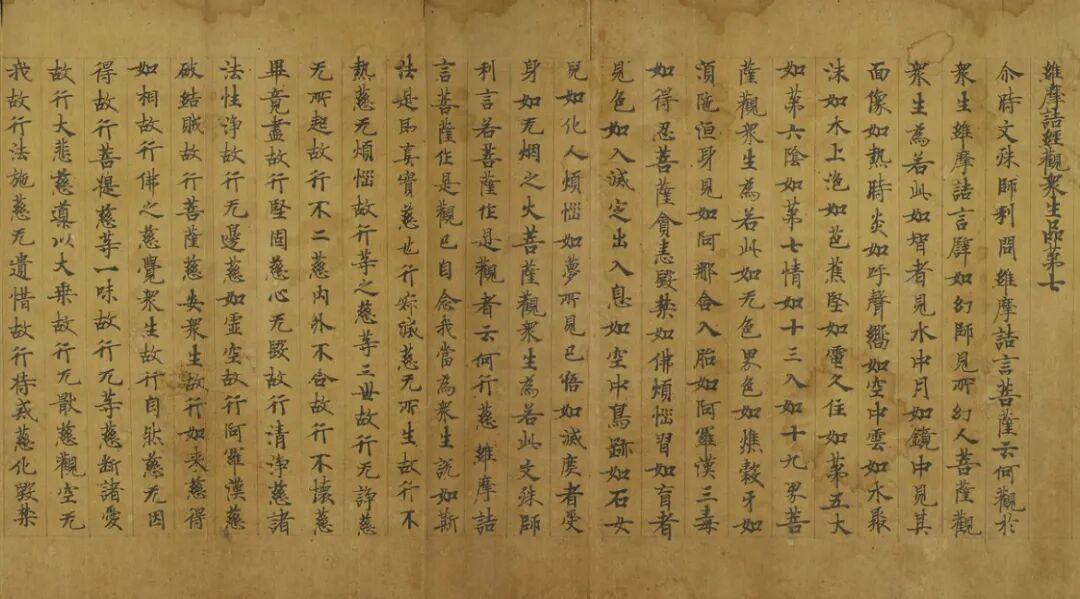 維摩詰經觀衆生品第七
尒時文殊師利問維摩詰言菩薩云何觀於
衆生維摩詰言譬如幻師見所幻人菩薩觀
衆生為若此如智者見水中月如鏡中見其
面像如熱時炎如呼聲嚮如空中雲如水聚
沫如水上泡如芭蕉堅如電久住如第五大
如第六陰如第七情如十三入如十九界菩
薩觀衆生為若此如无色界色如燋穀牙如
湏陁洹身見如阿那含入胎如阿羅漢三毒
如得忍菩薩貪恚毀禁如佛煩惱習如盲者
見色如入滅定出入息如空中鳥跡如石女
兒如化人煩惱如夢所見已悟如滅度者受
身如无烟之火菩薩觀衆生為若此文殊師
利言若菩薩作是觀者云何行慈維摩詰
言菩薩作是觀已自念我當為衆生說如斯
法是即真實慈也行寂滅慈无所生故行不
熱慈无煩惱故行等之慈等三世故行无諍慈
无所起故行不二慈內外不合故行不壞慈
畢竟盡故行堅固慈心无毀故行清淨慈諸
法性淨故行无邊慈如虛空故行阿羅漢慈
破結賊故行菩薩慈安衆生故行如来慈得
如相故行佛之慈覺衆生故行自然慈无因
得故行菩提慈等一味故行无等慈斷諸愛
故行大悲慈導以大乗故行无猒慈觀空无
我故行法施慈无遺惜故行持戒慈化毀禁